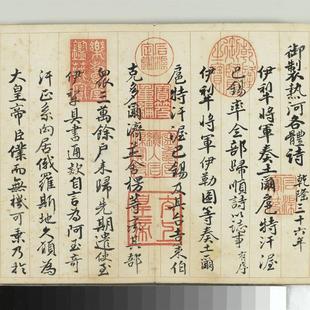 御製熱河各體詩 乾隆三十六年
伊犁將軍奏土爾扈特汗渥
巴錫率全部歸順詩以誌事 有序
伊犁將軍伊勒圖等奏土爾
扈特汗渥巴錫及其台吉策伯
克多爾濟舍楞等率其部
眾三萬餘戶來歸先期遣使至
伊犁具書通款自言為阿玉奇
汗正系向居俄羅斯地久願為
大皇帝臣僕而無機可乘乃於